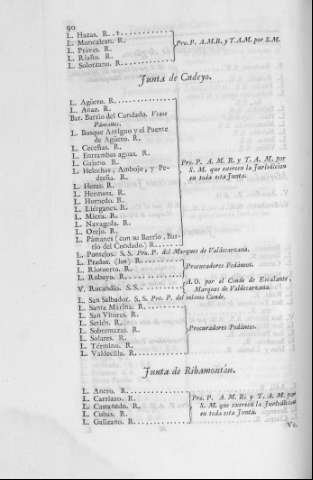 90
L. Hazas. R. . .
L. Mancaleas. R.
L. Praves. R.
L. Riaño. R.
L. Solorzano. R.
Pro. P. A.M.R. y T.A.M. por S.M.
Junta de Cudeyo.
L. Agüero. R.
L. Anaz. R.
Bar. Barrio del Condado. Vease
Pámanes.
L. Bosque Antiguo y el Puente
de Agüero. R.
L. Ceceñas. R.
L. Entrambas aguas. R.
L. Gajano. R.
L. Helechas, Ambojo, y Pe-
dreña. R.
L. Heras. R.
L. Hermosa. R.
L. Hornedo. R.
L. Liérganes. R.
L. Miera. R.
L. Navagola. R.
L. Orejo. R.
L. Pámanes (con su Barrio, Bar-
rio del Condado.) R.
Pro. P. A. M. R. y T. A. M. por
S. M. que exerce la Jurisdicion
en toda esta Junta.
L. Pontejos. S. S. Pro. P. del Marques de Valdecarzana.
L. Prados. (los) R.
L. Riotuerto. R.
L. Rubayo. R.
Procuradores Pedáneos.
V. Rucandio. S. S.
A.O. por el Conde de Escalante,
Marques de Valdecarzana.
L. San Salbador. S. S. Pro. P. del mismo Conde.
L. Santa Marina. R.
L. San Vitores. R.
L. Setién. R.
L. Sobremazas. R.
L. Solares. R.
L. Término. R.
L. Valdecilla. R.
Procuradores Pedáneos.
Junta de Ribamontán.
L. Anero. R.
L. Carriazo. R.
L. Castañedo. R.
L. Cubas. R.
L. Galizano. R.
Pro. P. A. M. R. y T. A. M. por
S. M. que exerce la Jurisdicion
en toda esta Junta.